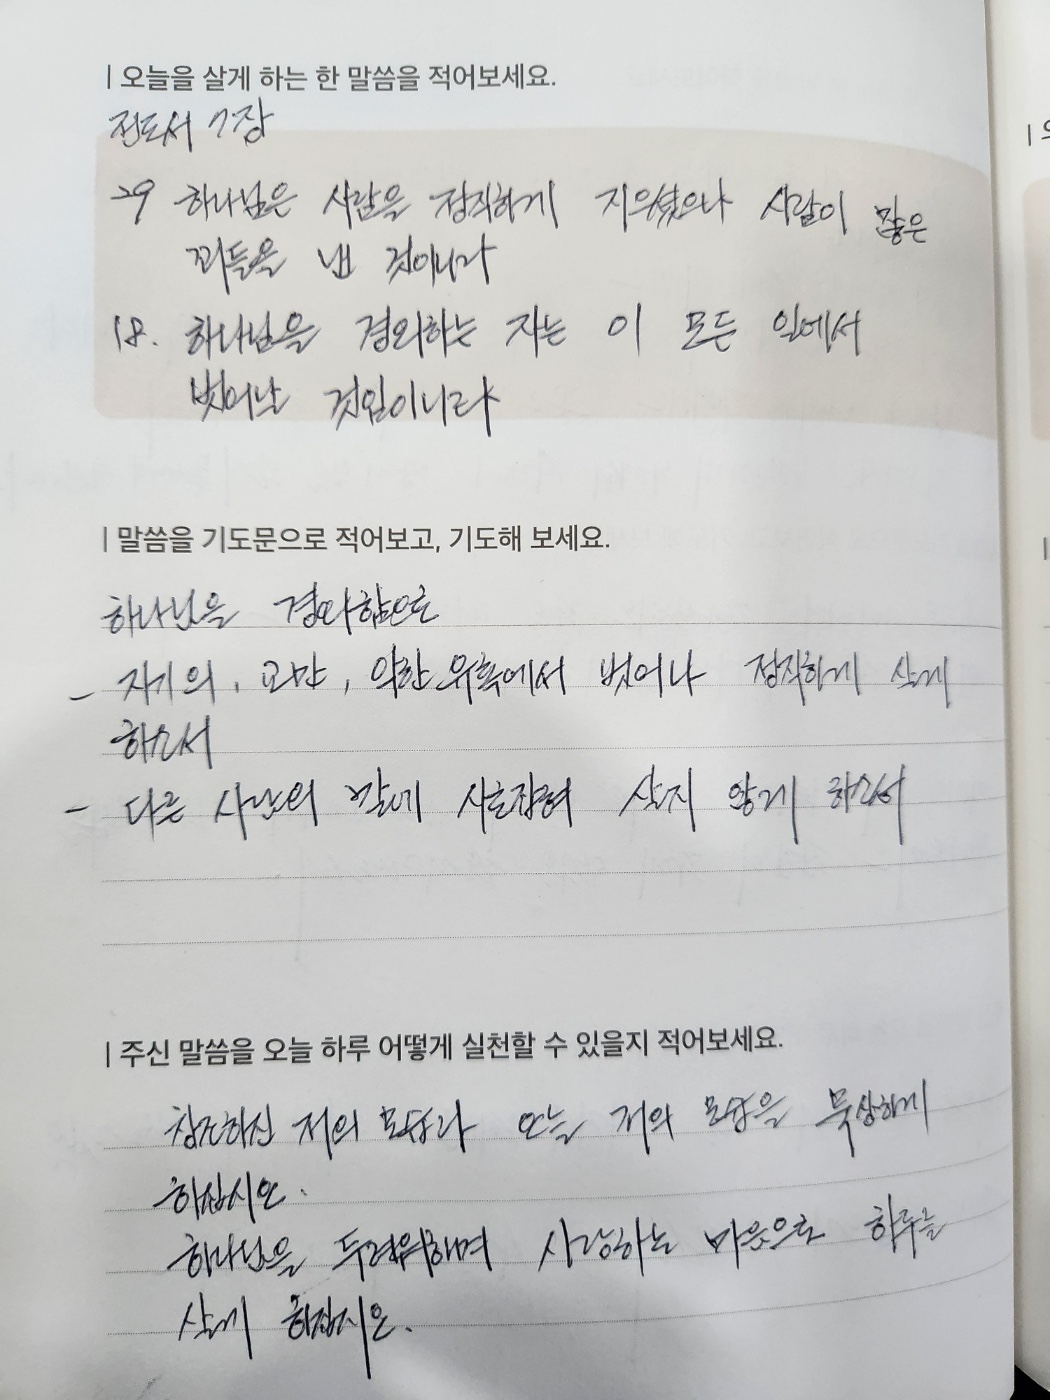 | 오늘을 살게 하는 한 말씀을 적어보세요.
전도서 7장
29 하나님은 사람을 정직하게 지으셨으나 사람이 많은
꾀들을 낸 것이니라
18. 하나님을 경외하는 자는 이 모든 일에서
벗어날 것임이니라
| 말씀을 기도문으로 적어보고, 기도해 보세요.
하나님을 경외함으로
- 자기의, 교만, 악한 유혹에서 벗어나 정직하게 살게
하소서
- 다른 사람의 말에 사로잡혀 살지 않게 하소서
| 주신 말씀을 오늘 하루 어떻게 실천할 수 있을지 적어보세요.
창조하신 저의 모습과 오늘 저의 모습을 묵상하게
하십시오.
하나님을 두려워하며 사랑하는 마음으로 하루를
살게 하십시오.